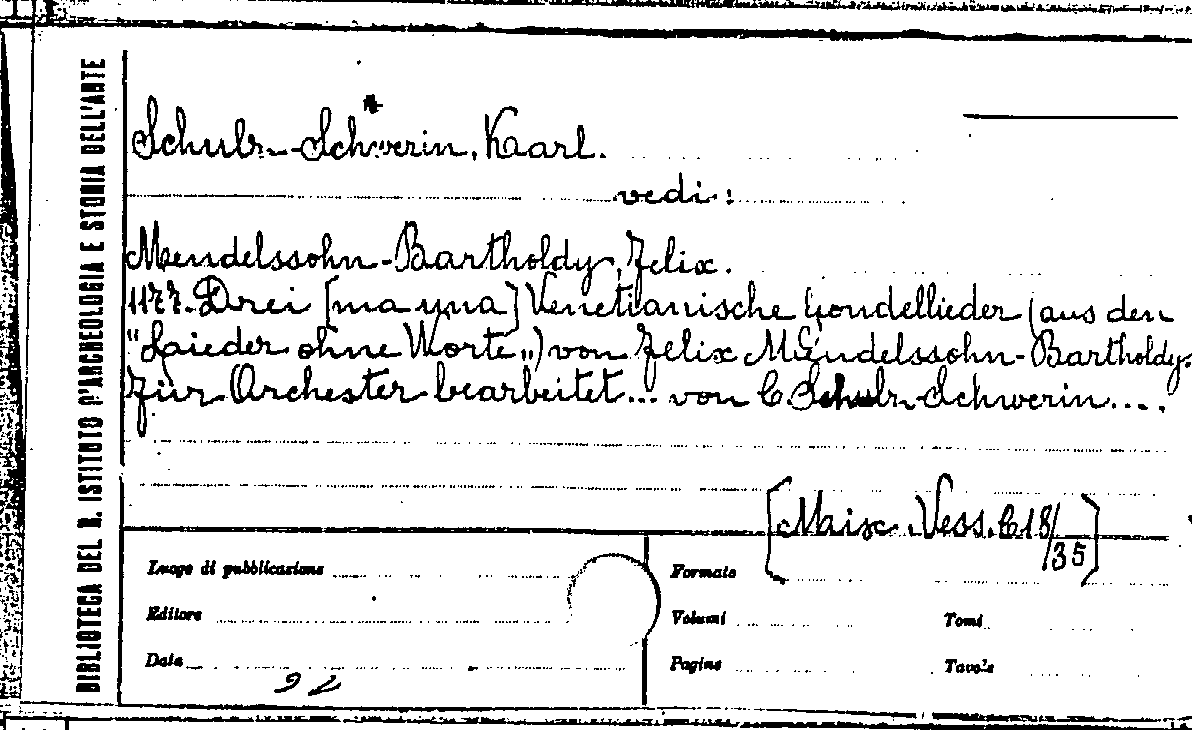 BIBLIOTECA DEL R. ISTITUTO D'ARCHEOLOGIA E STORIA DELL'ARTE
Schulz-Schwerin, Kaarl.
vedi:
Mendelssohn-Bartholdy, Felix.
Drei [ma una] Venetianische Gondellieder (aus den
"Laieder ohne Worte„) von Felix Mendelssohn-Bartholdy.
Für Orchester bearbeitet... von C Schulz-Schwerin....
Vess. C 18/35]
Luogo di pubblicazione
Formato
Editore
Volumi
Tomi
Data
Pagine
Tavole